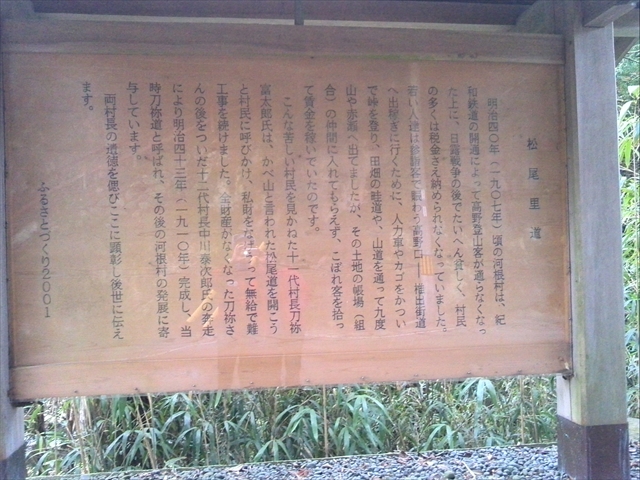 松尾里道
明治四〇年（一九〇七年）頃の河根村は、紀
和鉄道の開通によって高野登山客が通らなくなっ
た上に、日露戦争の後でたいへん貧しく、村民
の多くは税金さえ納められなくなっていました。
若い人達は参詣客で賑わう高野口―椎出街道
へ出稼ぎに行くために、人力車やカゴをかつい
で峠を登り、田畑の畦道や、山道を通って九度
山や赤瀬へ出てましたが、その土地の帳場（組
合）の仲間に入れてもらえず、こぼれ客を拾っ
て賃金を稼いでいたのです。
こんな苦しい村民を見かねた十一代村長刀祢
富太郎氏は、かべ山と言われた松尾道を開こう
と村民に呼びかけ、私財をなげうって無給で難
工事を続けました。全財産がなくなった刀祢さ
んの後をついだ十二代村長中川泰次郎氏の奔走
により明治四十三年（一九一〇年）完成し、当
時刀祢道と呼ばれ、その後の河根村の発展に寄
与しています。
両村長の遺徳を偲びここに顕彰し後世に伝え
ます。
ふるさとづくり２００１